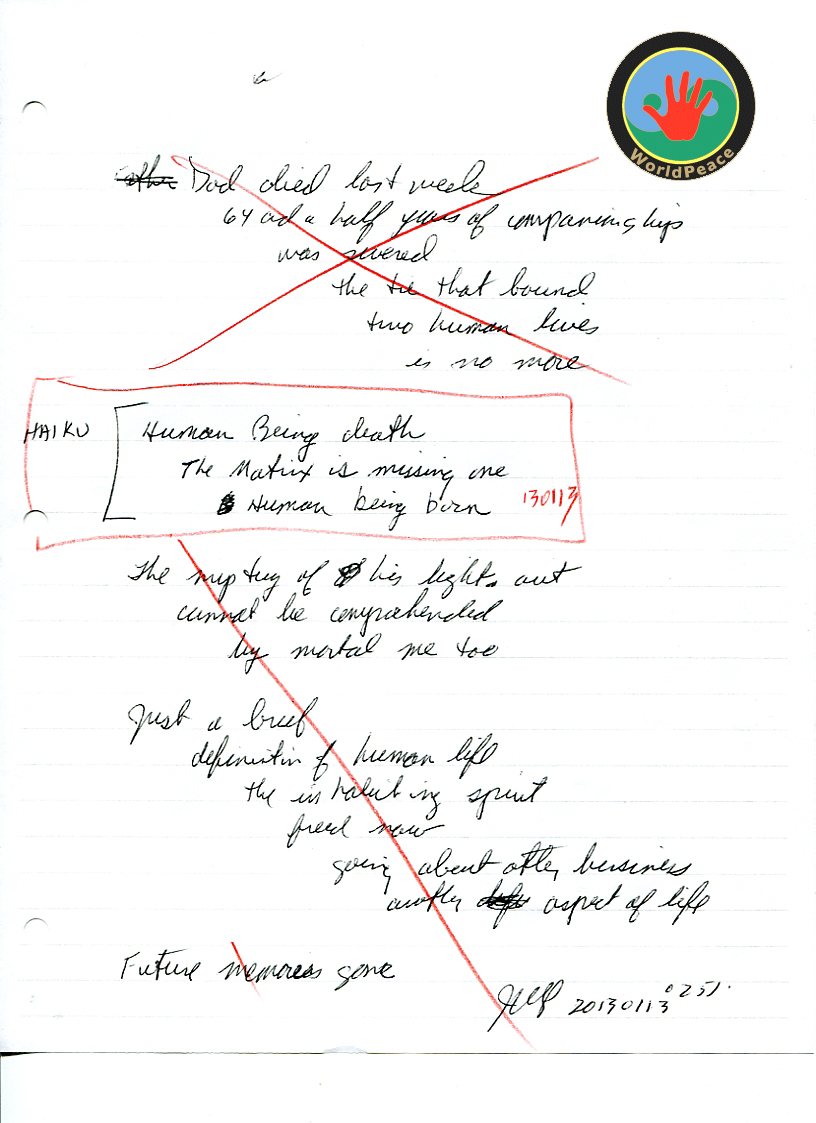 WorldPeace
Dad died last week
64 and a half years of companionship
was severed
the tie that bound
two human lives
is no more
HAIKU
Human Being death
The Matrix is missing one
Human being born
130113
The mystery of his lights out
cannot be comprehended
by mortal me too
Just a brief
definition of human life
the inhabiting spirit
freed now
going about other business
another aspect of life
Future memories gone
20130113 0251.